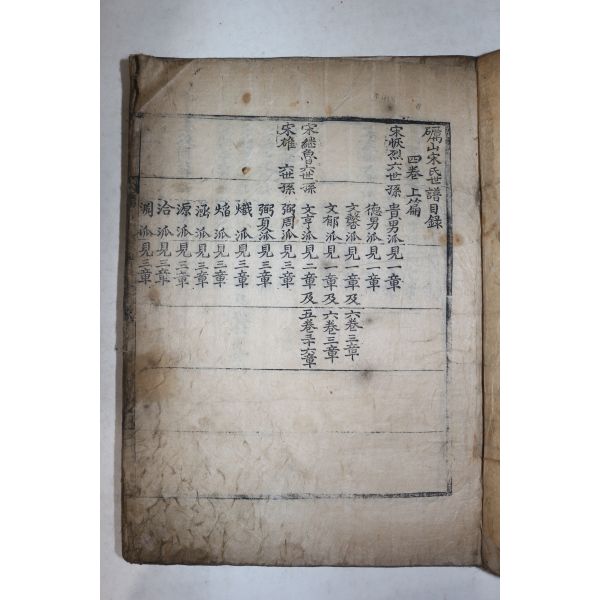 礪山宋氏世譜目錄
四卷上篇
宋恢烈六世孫 貴男派見一章
德男派見一章
文馨派見一章及六卷三章
文郁派見一章及六卷三章
宋繼魯六世孫 文亨派見二章及五卷三十六章
宋雄六世孫 弼周派見三章
弼夏派見三章
熾派見三章
焰派見三章
涵派見三章
源派見三章
洽派見三章
澗派見三章